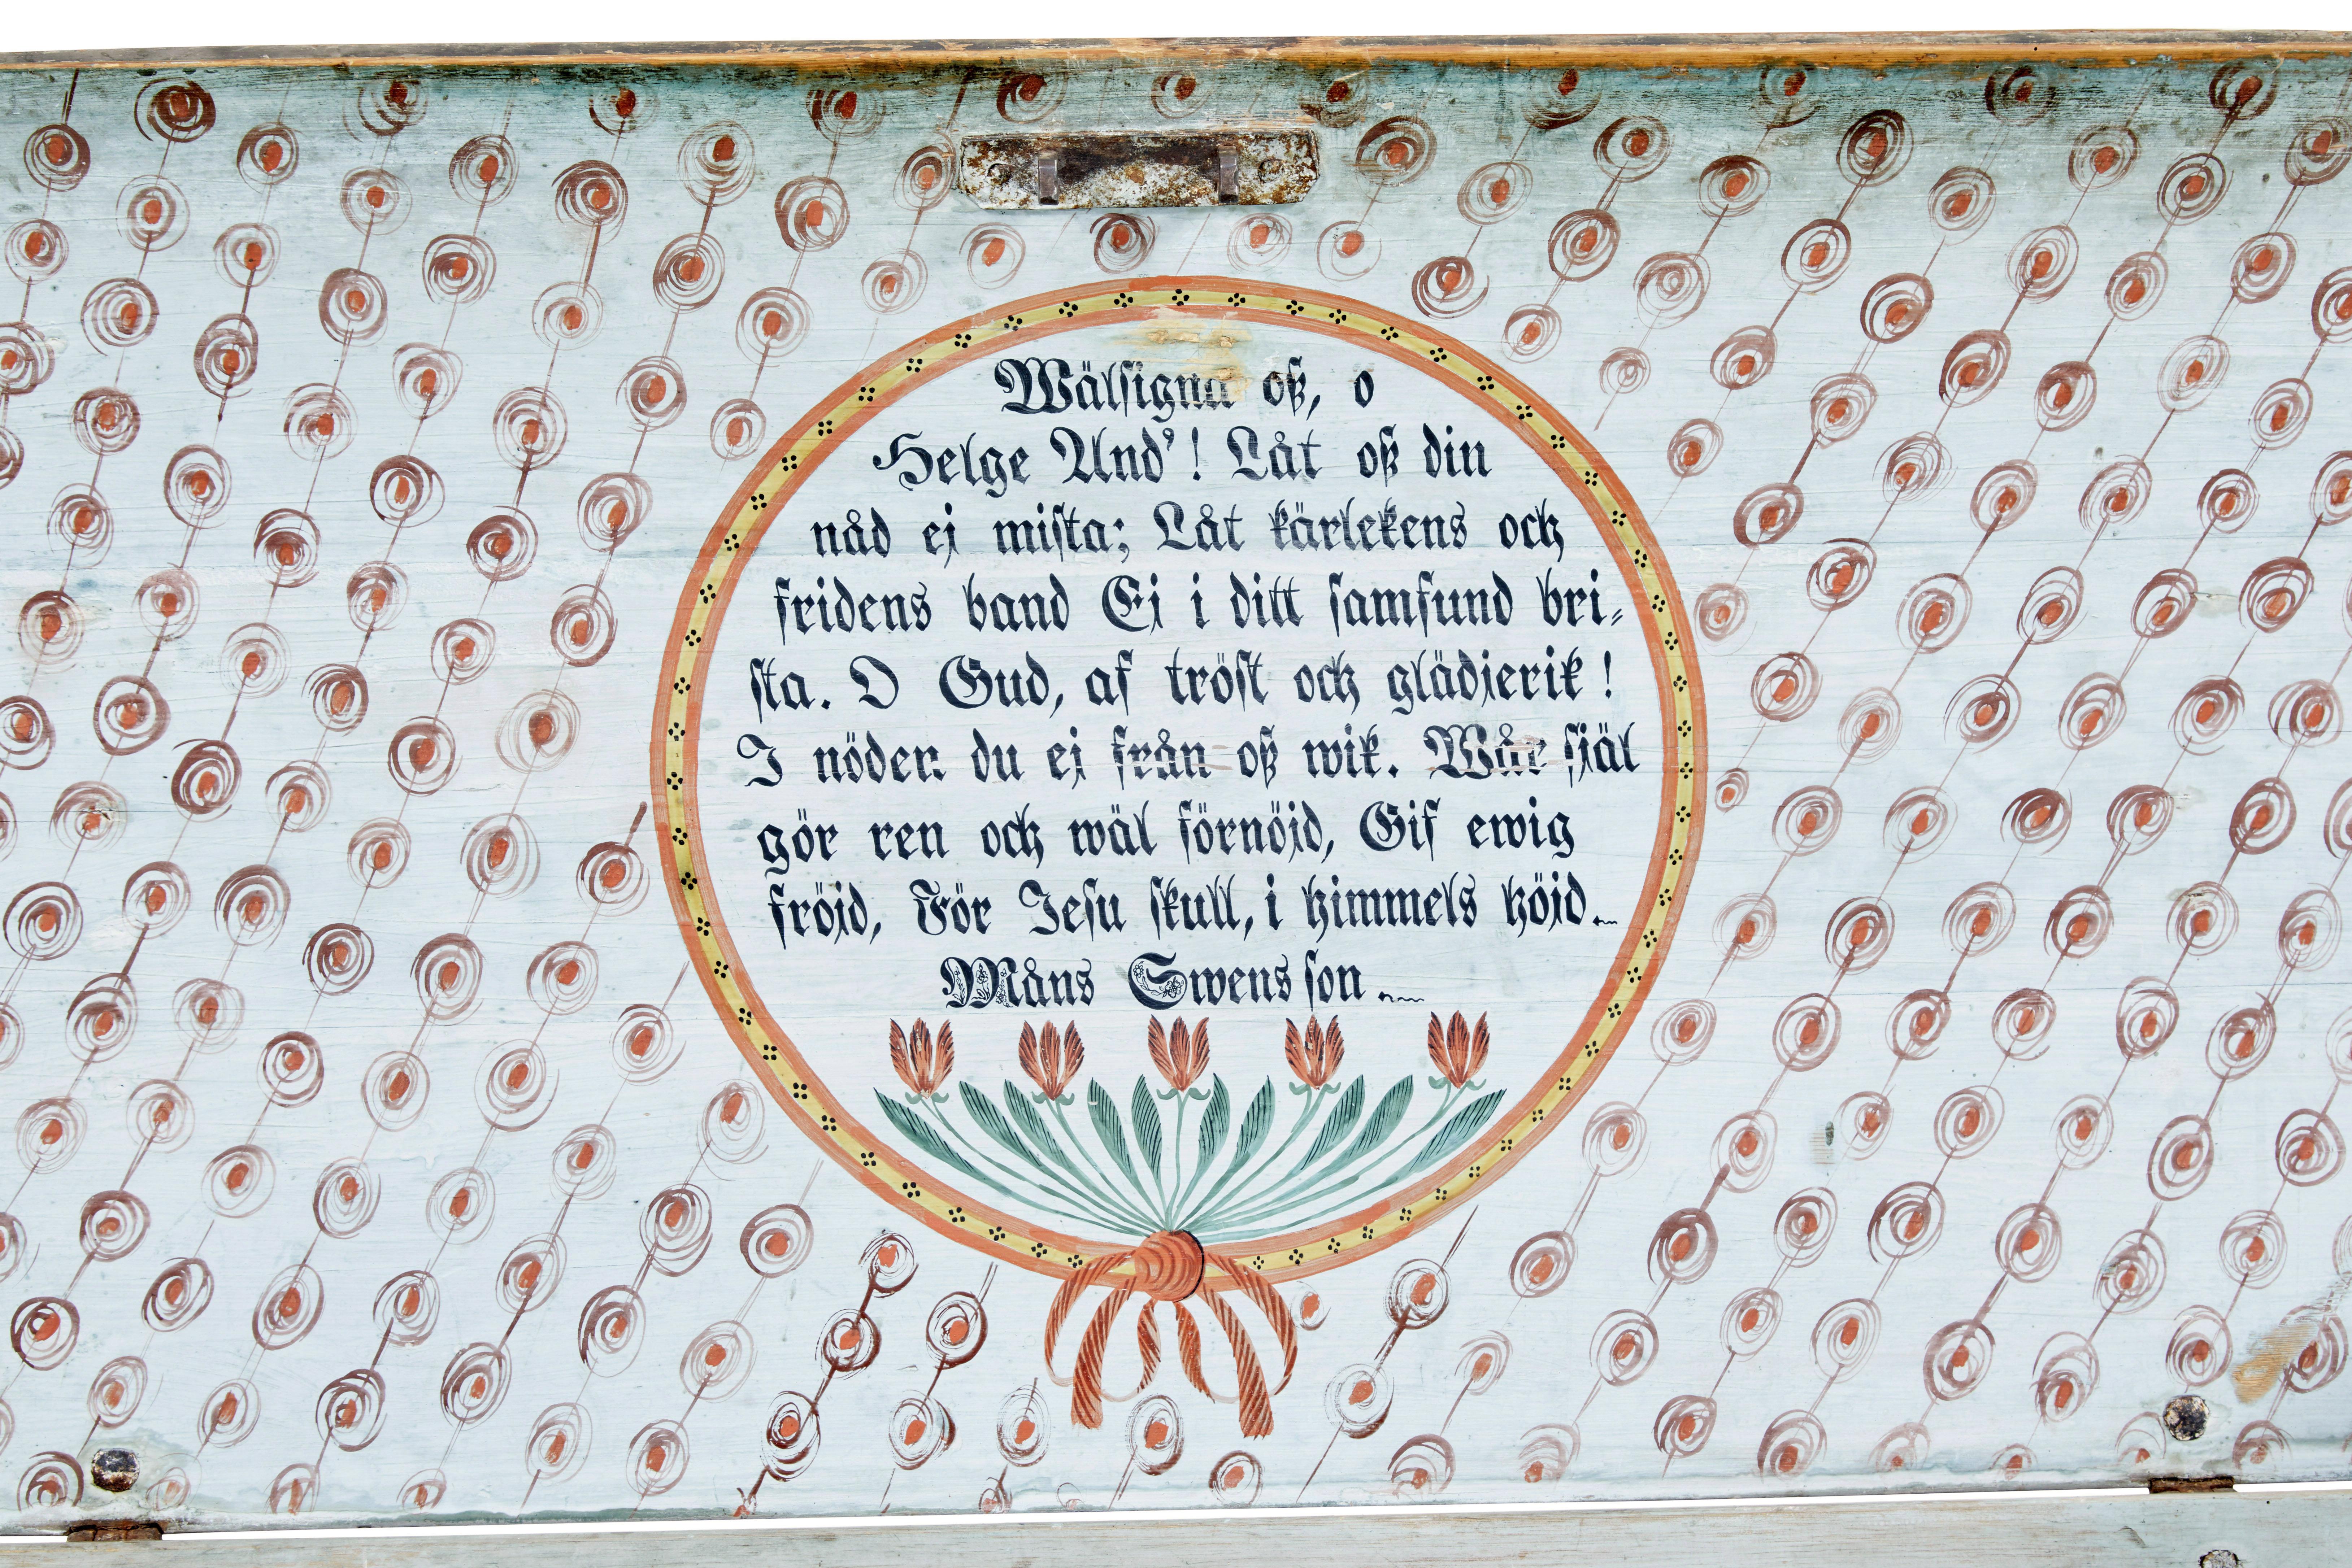 Wälsigna oß, o
Helge And'! Låt oß din
nåd ej mista; Låt kärlekens och
fridens band Ej i ditt samfund bri-
sta. O Gud, af tröst och glädjerik!
I nöden du ej från oß wik. Wår själ
gör ren och wäl förnöjd, Gif ewig
fröjd, För Jesu skull, i himmels höjd.
Måns Swensson.